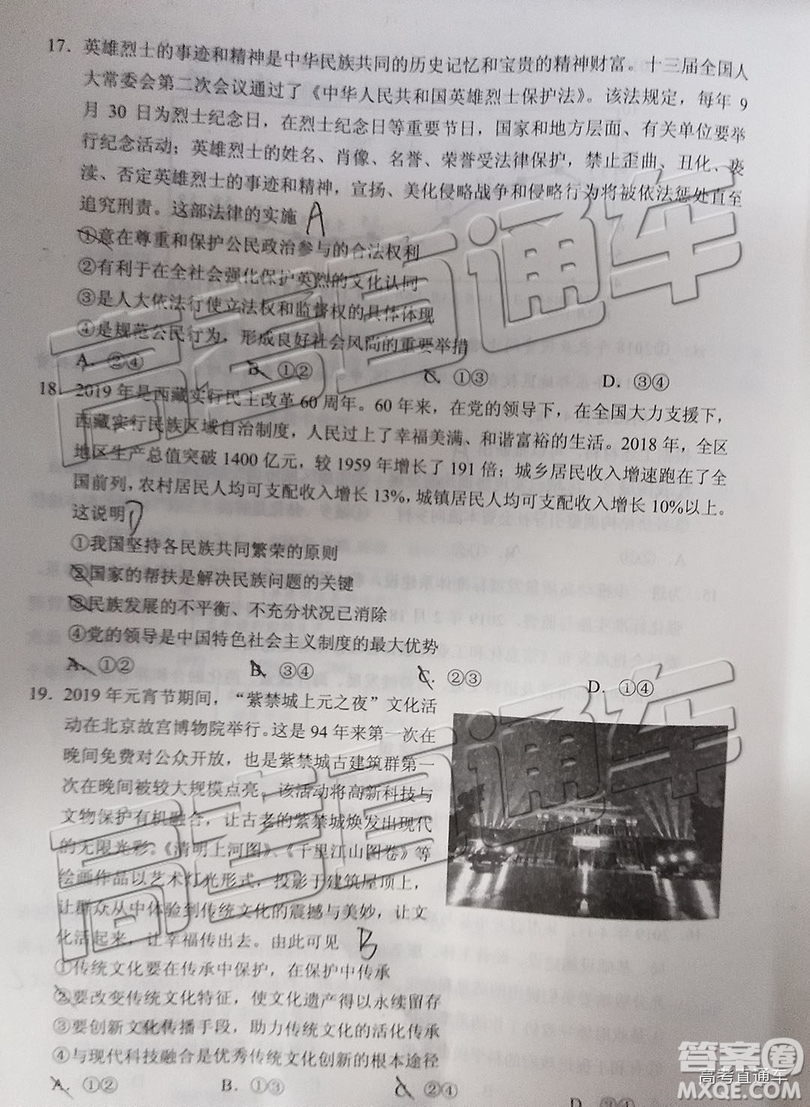 17. 英雄烈士的事迹和精神是中华民族共同的历史记忆和宝贵的精神财富。十三届全国人
大常委会第二次会议通过了《中华人民共和国英雄烈士保护法》。该法规定，每年 9
月 30 日为烈士纪念日，在烈士纪念日等重要节日，国家和地方层面、有关单位要举
行纪念活动；英雄烈士的姓名、肖像、名誉、荣誉受法律保护，禁止歪曲、丑化、亵
渎、否定英雄烈士的事迹和精神，宣扬、美化侵略战争和侵略行为将被依法惩处直至
追究刑责。这部法律的实施 A
①意在尊重和保护公民政治参与的合法权利
②有利于在全社会强化保护英烈的文化认同
③是人大依法行使立法权和监督权的具体体现
④是规范公民行为，形成良好社会风尚的重要举措
A. ②④ B. ①② C. ①③ D. ③④
18. 2019 年是西藏实行民主改革 60 周年。60 年来，在党的领导下，在全国大力支援下，
西藏实行民族区域自治制度，人民过上了幸福美满、和谐富裕的生活。2018 年，全区
地区生产总值突破 1400 亿元，较 1959 年增长了 191 倍；城乡居民收入增速跑在了全
国前列，农村居民人均可支配收入增长 13%，城镇居民人均可支配收入增长 10%以上。
这说明 D
①我国坚持各民族共同繁荣的原则
②国家的帮扶是解决民族问题的关键
③民族发展的不平衡、不充分状况已消除
④党的领导是中国特色社会主义制度的最大优势
A. ①② B. ③④ C. ②③ D. ①④
19. 2019 年元宵节期间，“紫禁城上元之夜”文化活
动在北京故宫博物院举行。这是 94 年来第一次在
晚间免费对公众开放，也是紫禁城古建筑群第一
次在晚间被较大规模点亮。该活动将高新科技与
文物保护有机融合，让古老的紫禁城焕发出现代
的无限光彩。《清明上河图》、《千里江山图卷》等
绘画作品以艺术灯光形式，投影于建筑屋顶上，
让群众从中体验到传统文化的震撼与美妙，让文
化活起来，让幸福传出去。由此可见 B
①传统文化要在传承中保护，在保护中传承
②要改变传统文化特征，使文化遗产得以永续留存
③要创新文化传播手段，助力传统文化的活化传承
④与现代科技融合是优秀传统文化创新的根本途径
A. ①② B. ①③ C. ②④ D. ③④
高考直通车
高考直通车
答案圈
高考直通车
MXQE.COM